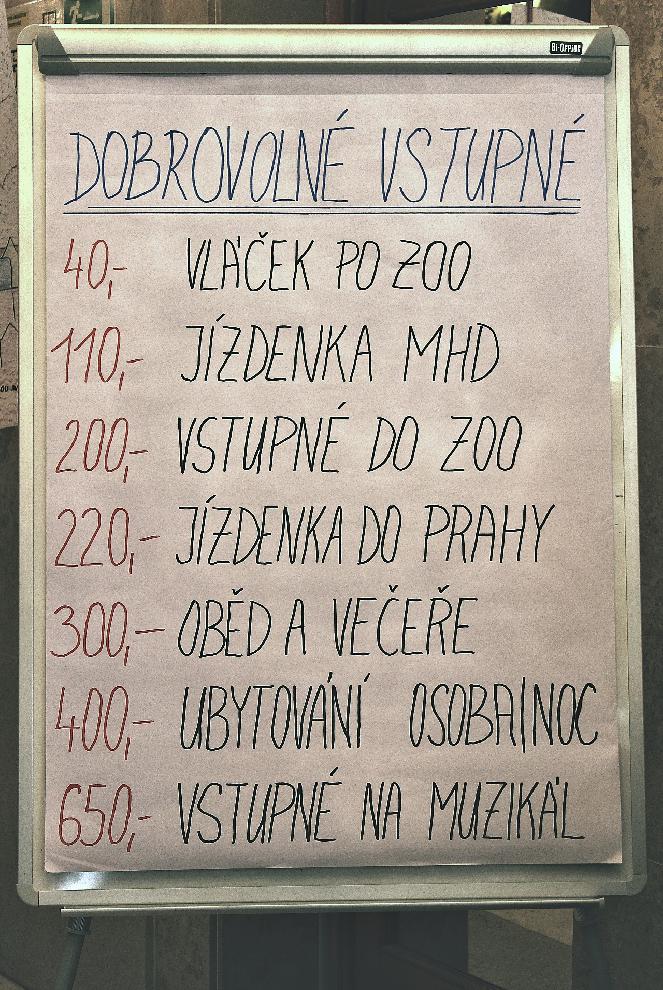 Bi-Office
DOBROVOLNÉ VSTUPNÉ
40,- VLÁČEK PO ZOO
110,- JÍZDENKA MHD
200,- VSTUPNÉ DO ZOO
220,- JÍZDENKA DO PRAHY
300,- OBĚD A VEČEŘE
400,- UBYTOVÁNÍ OSOBA|NOC
650,- VSTUPNÉ NA MUZIKÁL